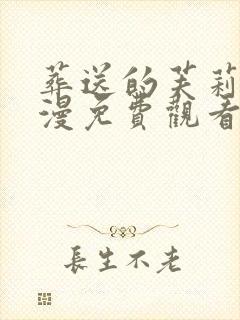 葬送的芙莉
漫免費觀看
長生不老